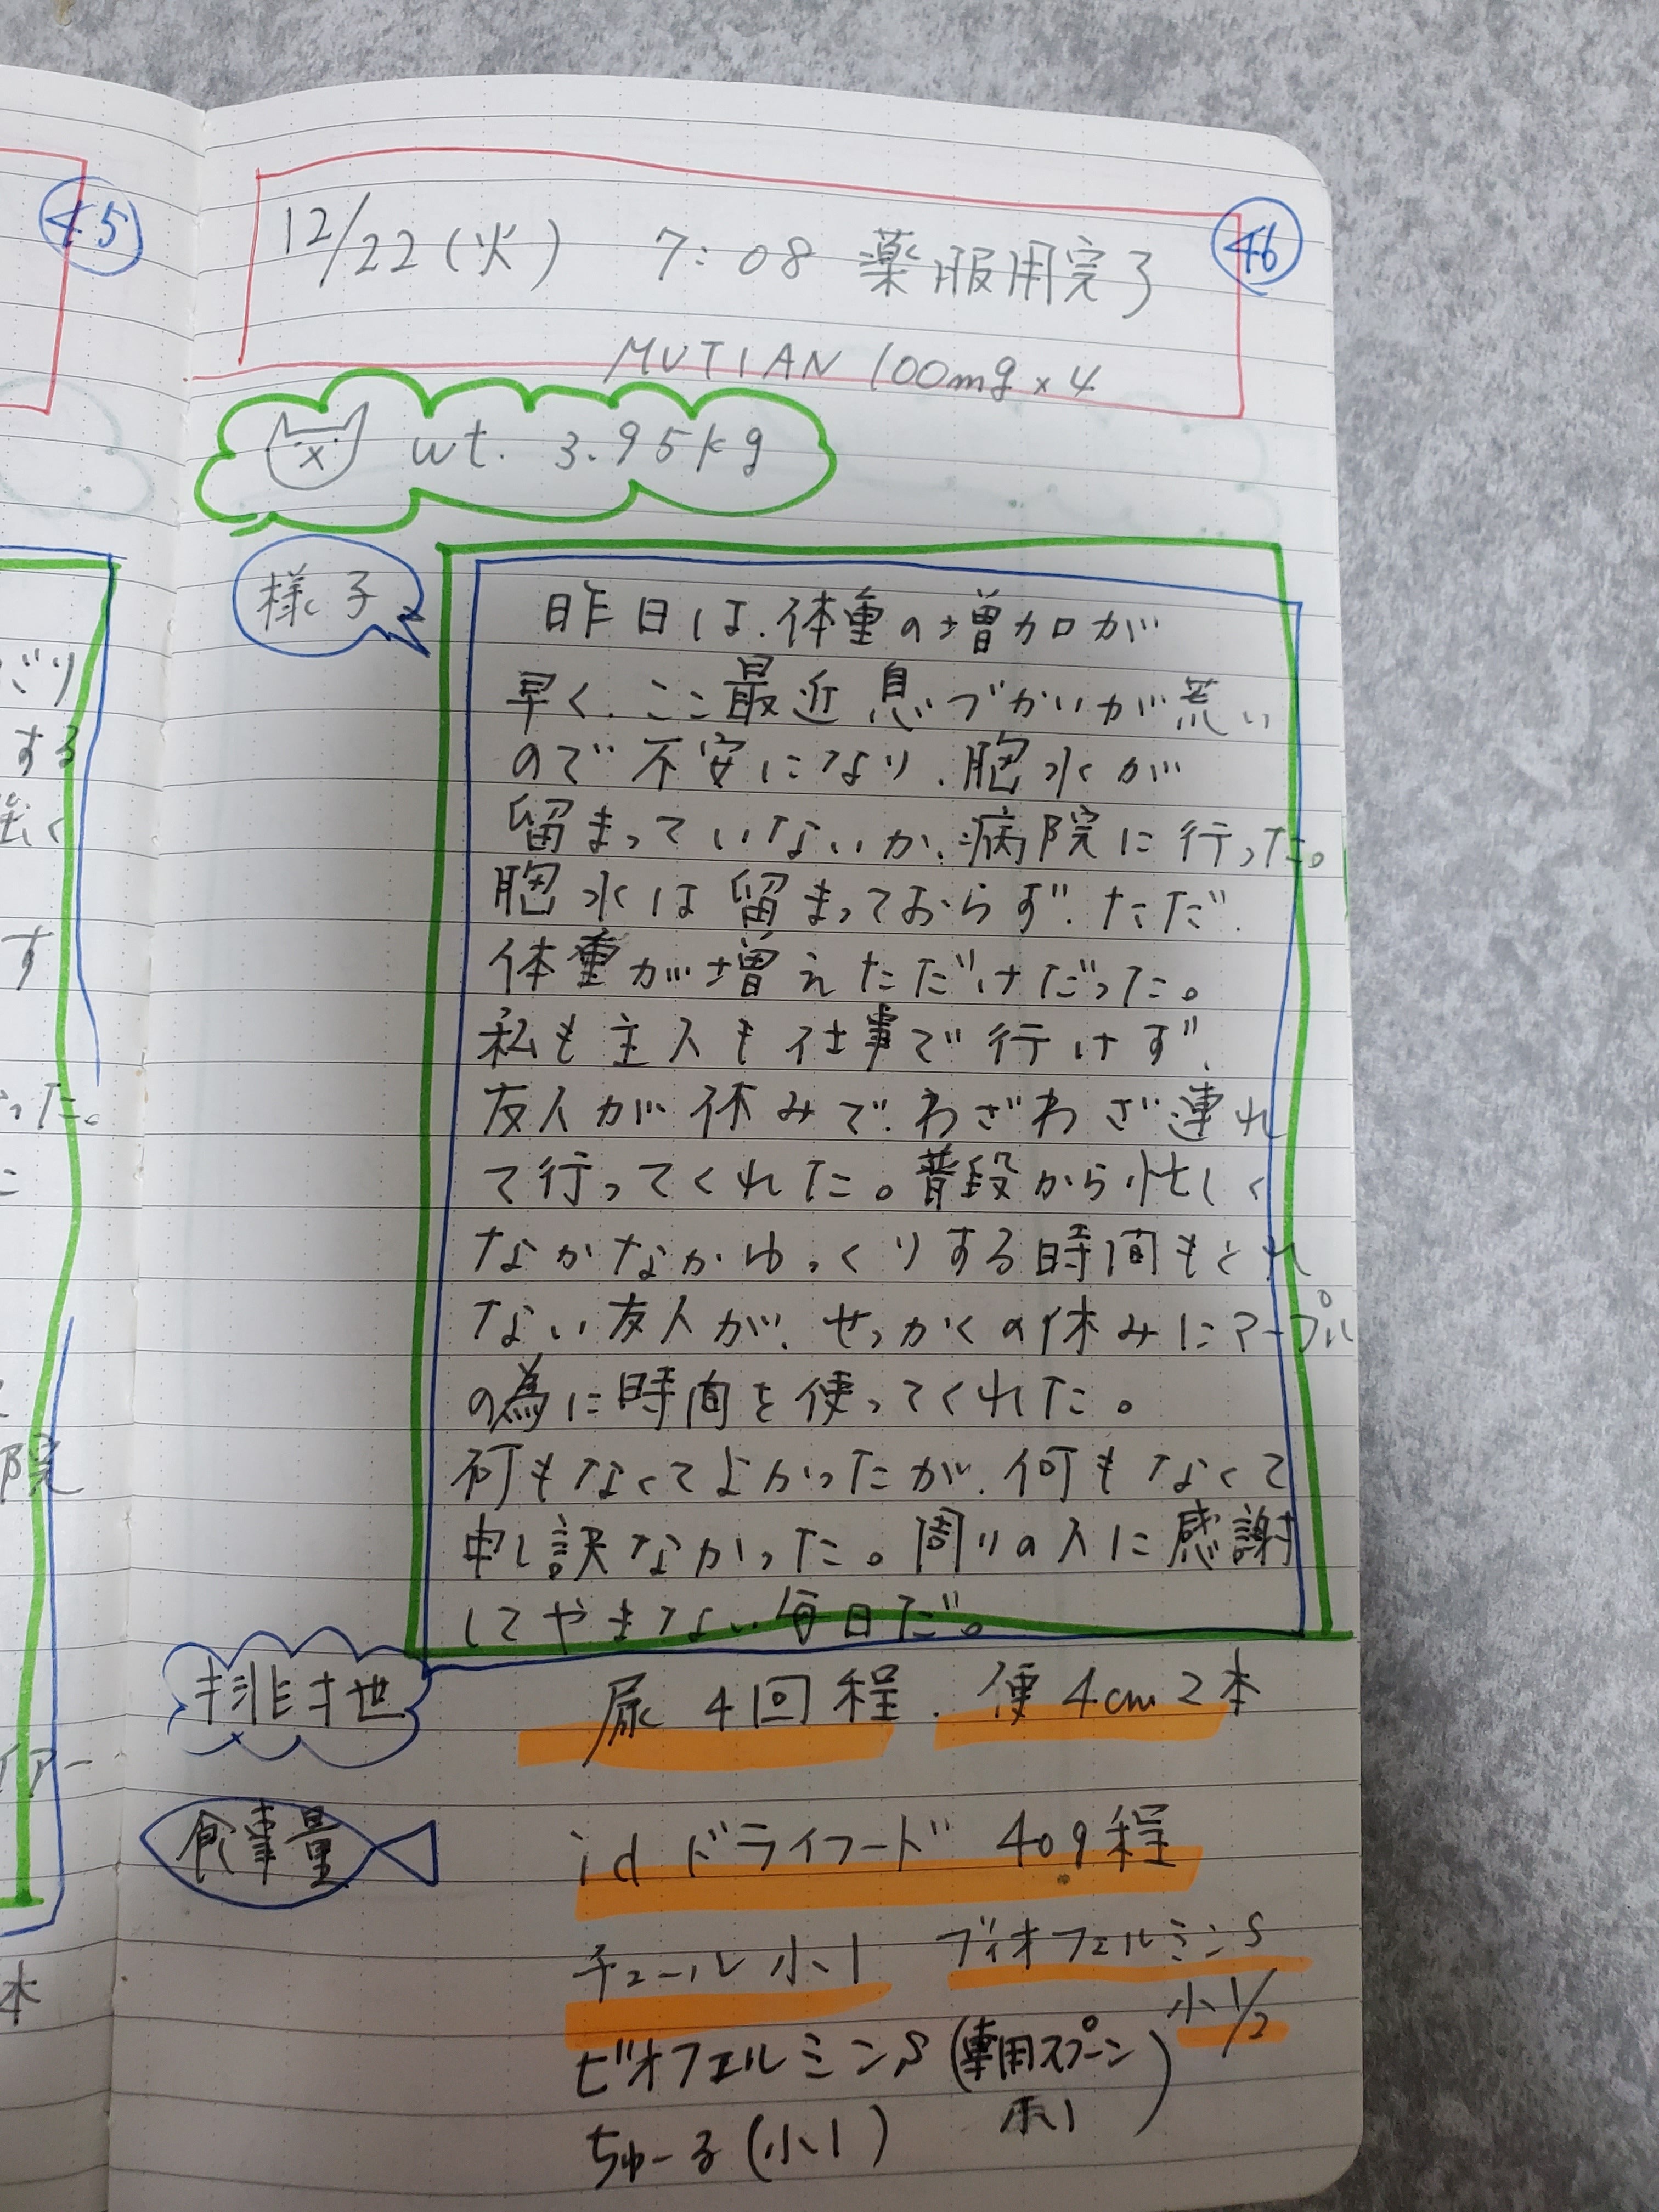 ㊺
12/22(火) 7:08 薬服用完了
㊻
MUTIAN 100mg×4
wt. 3.95kg
様子
昨日は、体重の増加が
早く、ここ最近息づかいが荒い
ので不安になり、胸水が
留まっていないか、病院に行った。
胸水は留まっておらず、ただ、
体重が増えただけだった。
私も主人も仕事で行けず、
友人が休みで、わざわざ連れ
て行ってくれた。普段から忙しく
なかなかゆっくりする時間もとれ
ない友人が、せっかくの休みにマープル
の為に時間を使ってくれた。
何もなくてよかったが、何もなくて
申し訳なかった。周りの人に感謝
してやまない毎日だ。
排泄
尿4回程、便4cm2本
食事量
id ドライフード 40g程
チュール小1 ブィオフェルミンS
小1/2
ビオフェルミンS(専用スプーン
小1)
ちゅーる(小1)
ごり
する
す
った。
院
本